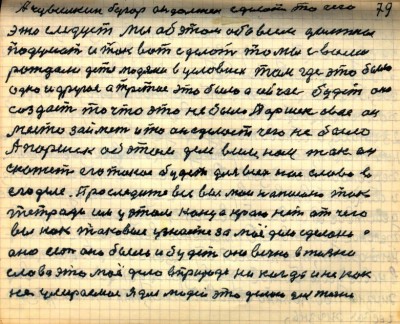 А кувшинки бугор он должен сделать то чего 79
это следует мы об этом обо всем должны
подумать и так вот сделать то мы с вами
рождали дети людями в условиях там где это было
одно и другое а третие это было а сейчас будет оно
создать то что это не было Паршек свое он
место займет и то он сделает чего не было
А паршек об этом деле всем нам так он
скажет его такое будет для всех нас слово в
его деле. Проследите все вы мои написано так
тетради им у этом конца края нет от чего
вы как таковые узнаете за моё дело сделано
оно есть оно было и будет оно вечно в жизни
слава это моё дело в природе никогда и никак
не умираемое я для людей это делаю для жизни